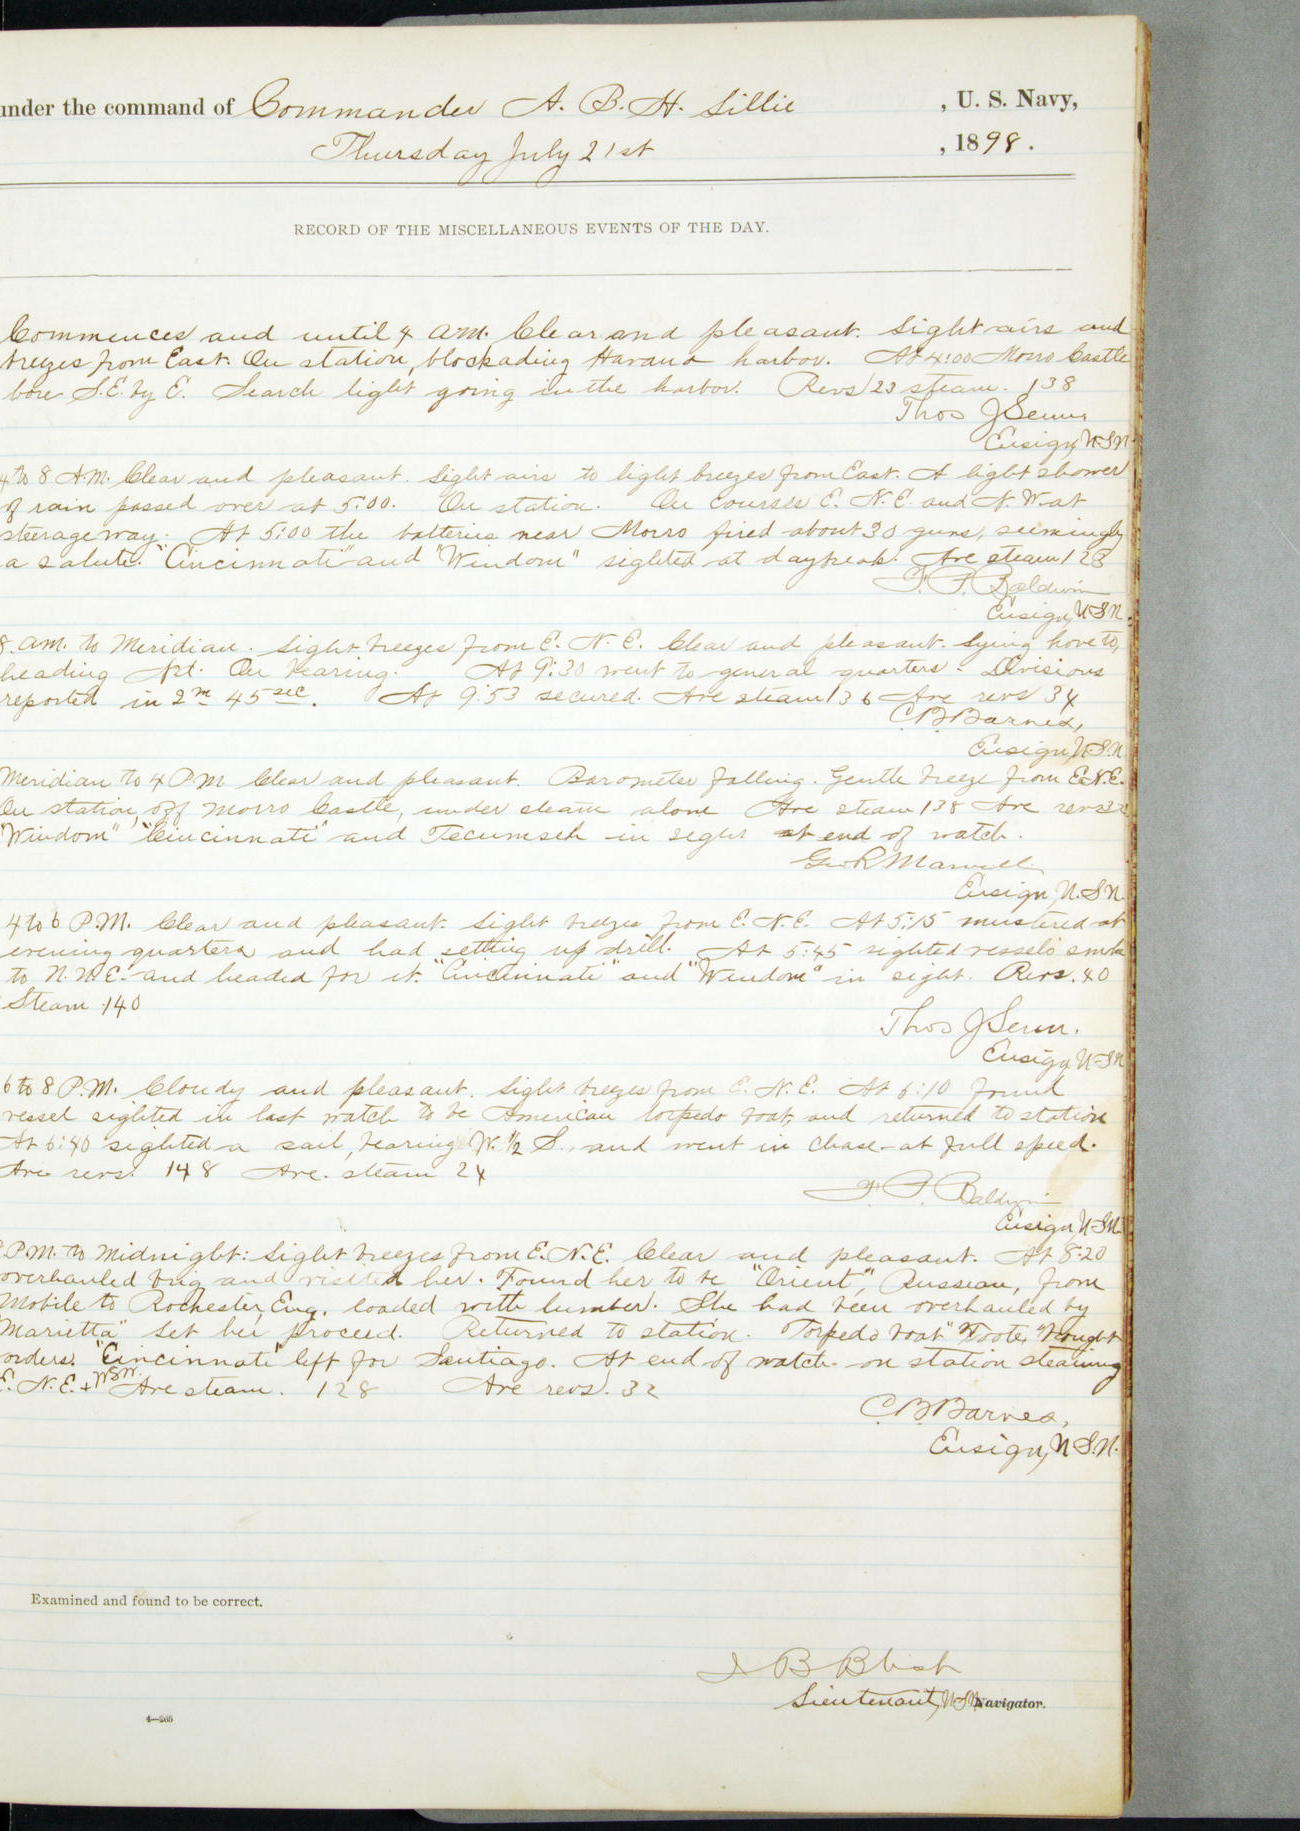 under the command of Commander A. B. H. Lillie , U. S. Navy,
Thursday July 21st , 1898.
RECORD OF THE MISCELLANEOUS EVENTS OF THE DAY.
Commences and until 4 A.M. Clear and pleasant. Light airs and
breezes from East. On station, blockading Havana harbor. At 4:00 Morro Castle
bore S.E. by E. Search light going in the harbor. Revs 23 steam. 138
Thos J Senn
Ensign, U.S.N.
4 to 8 A.M. Clear and pleasant. Light airs to light breezes from East. A light shower
of rain passed over at 5:00. On station. On courses E. N. E. and N. W. at
steerage way. At 5:00 the batteries near Morro fired about 30 guns, seemingly
a salute. "Cincinnati" and "Windom" sighted at daybreak. Ave steam 128
F. P. Baldwin
Ensign, U.S.N.
8. A.M. to Meridian. Light breezes from E. N. E. Clear and pleasant. Lying hove to,
heading Nd. On bearing. At 9:30 went to general quarters. Divisions
reported in 2m 45sec. At 9:53 secured. Ave steam 136 Ave revs 34
C. B. Barnes,
Ensign, U.S.N.
Meridian to 4 P.M. Clear and pleasant. Barometer falling. Gentle breeze from E.N.E.
On station, off Morro Castle, under steam alone Ave steam 138 Ave revs 32
"Windom" "Cincinnati" and Tecumseh in sight at end of watch.
Geo R Marvell
Ensign, U.S.N.
4 to 6 P.M. Clear and pleasant. Light breezes from E. N. E. At 5:15 mustered at
evening quarters and had setting up drill. At 5:45 sighted vessel's smoke
to N. N. E. and headed for it. "Cincinnati" and "Windom" in sight. Revs. 40
Steam 140
Thos J Senn.
Ensign, U.S.N.
6 to 8 P.M. Cloudy and pleasant. Light breezes from E. N. E. At 6:10 found
vessel sighted in last watch to be American torpedo boat, and returned to station
At 6:40 sighted a sail, bearing W. 1/2 S., and went in chase at full speed.
Ave revs. 148 Ave. steam 24
F. P. Baldwin
Ensign, U.S.N.
P.M. to Midnight: Light breezes from E. N. E. Clear and pleasant. At 8:20
overhauled brig and visited her. Found her to be "Orient", Russian, from
Mobile to Rochester, Eng. loaded with lumber. She had been overhauled by
"Marietta" Let her proceed. Returned to station. Torpedo boat "Foote" brought
orders. "Cincinnati" left for Santiago. At end of watch on station steaming
E. N. E. + WSW. Ave steam. 128 Ave revs. 32
C. B. Barnes,
Ensign, U.S.N.
Examined and found to be correct.
J B Blish
Lieutenant, U.S.N. Navigator.
4—265